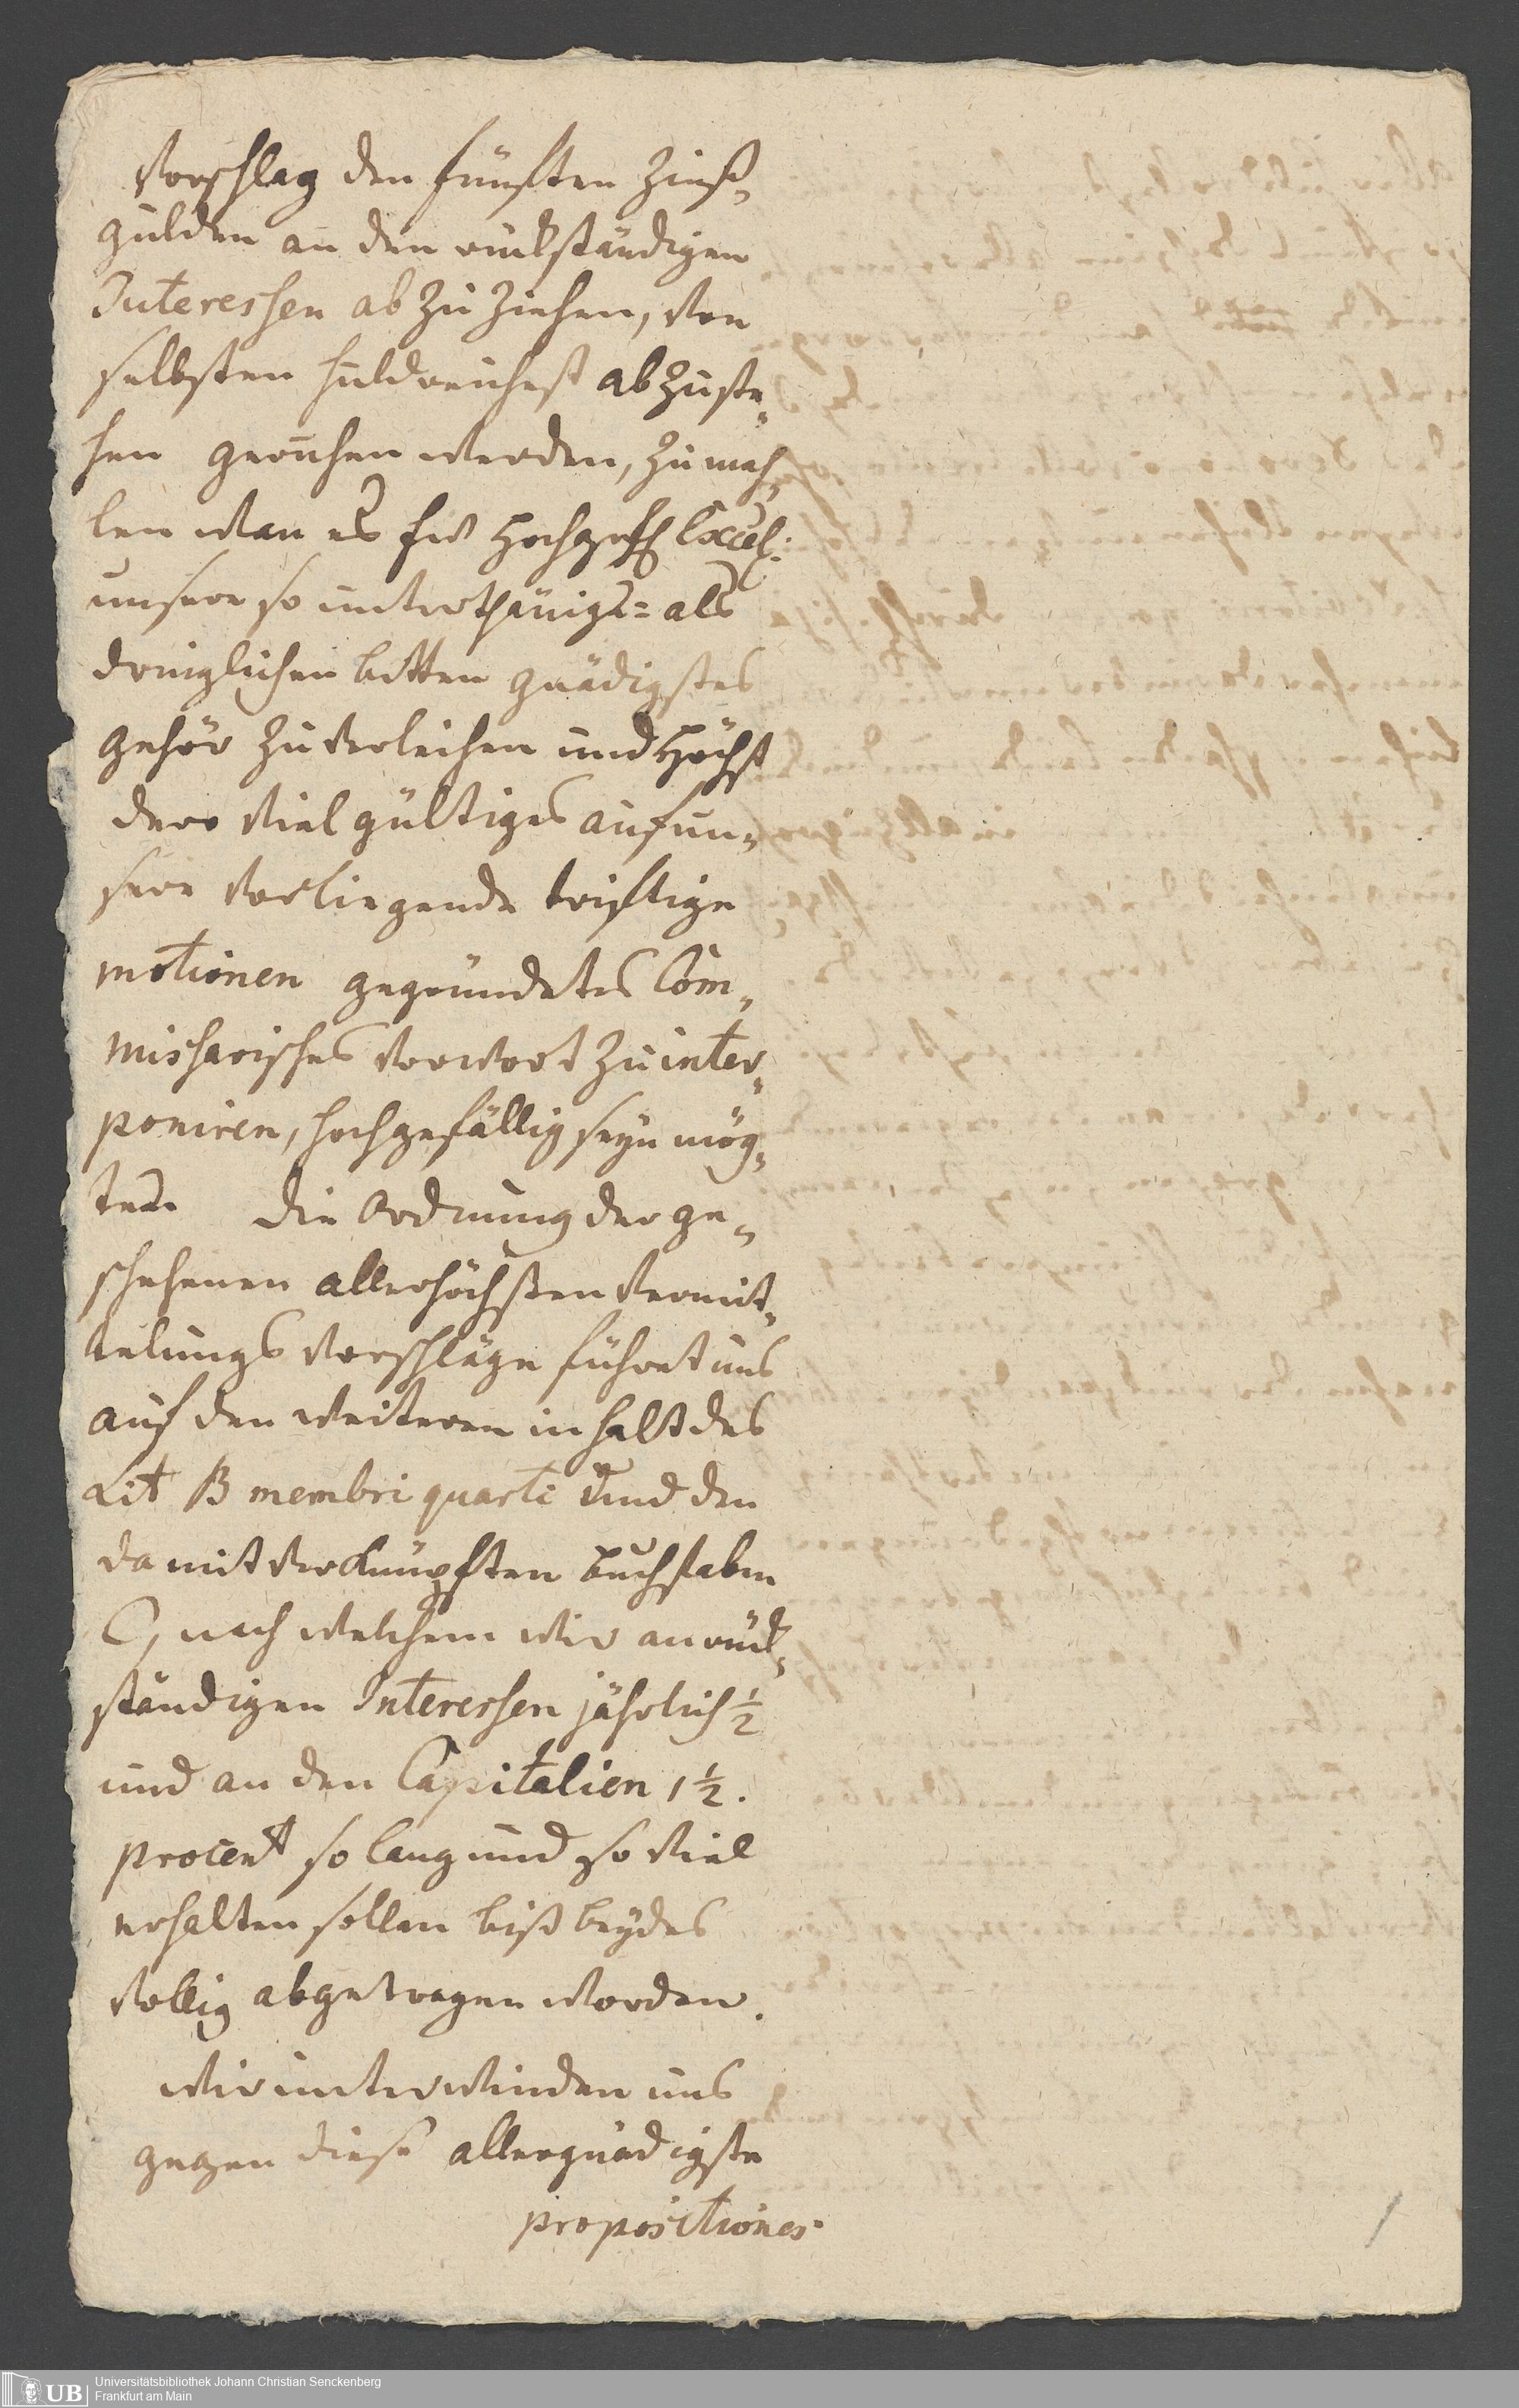 Vorschlag den fünften Zinß-
gulden an den rückständigen
Interessen ab zu ziehen, von
selbsten huldreichest abzuste-
hen geruhen werden, zumah-
len wan es Ew Hochgräfl Excel:
unsere so unterthänigst= als
dringlichen bitten gnädigstes
gehör zu verleihen und Höchst
dero viel gültiges auf un-
sere vorliegende triftige
motionen gegründetes Com-
missarisches vorwort zu inter-
poniren, hochgefällig seyn mög-
te. die Ordnung der ge-
schehenen allerhöchsten vermit-
telungs vorschläge führet uns
auf den weiteren inhalt des
Lit B membri quarti und den
damit verknüpften buchstaben
C, nach welchem wir an rück-
ständigen Interessen jährlich ½
und an den Capitalien 1 ½.
procent so lang und so viel
erhalten sollen biß beydes
völlig abgetragen worden.
wir unterwinden uns
gegen diese allergnädigste
propositiones
UB Universitätsbibliothek Johann Christian Senckenberg
Frankfurt am Main